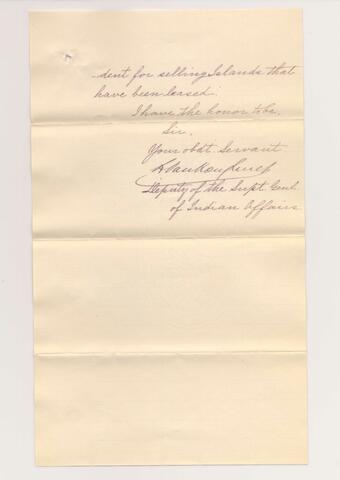 -dent for selling Islands that
have been leased.
I have the honor to be,
Sir,
Your obdt. Servant
L Vankoughnet
Deputy of the Supt. Genl.
of Indian Affairs